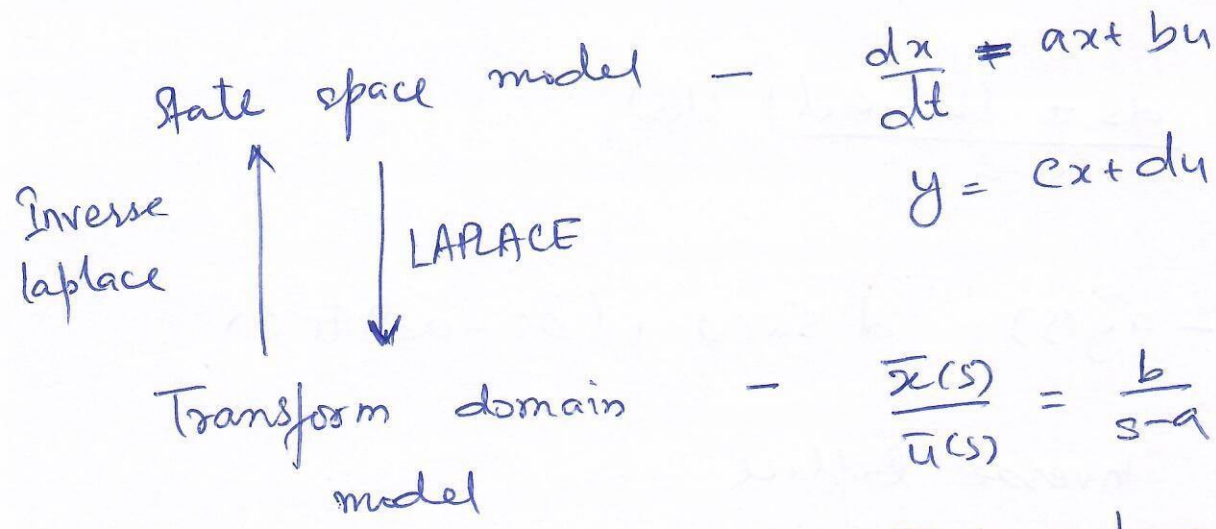 State space model - dx/dt = ax + bu
y = cx + du
Inverse laplace
LAPLACE
Transform domain model - x̅(s)/u̅(s) = b/s-a